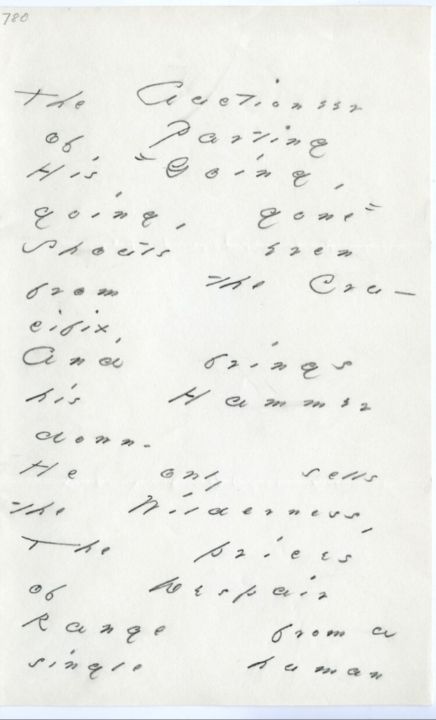 780
The Auctioneer
of Parting
His "Going,
going, gone"
Shouts even
from the Cru-
cifix,
And brings
his Hammer
down.
He only sells
the Wilderness,
The prices
of Despair
Range from a
single human